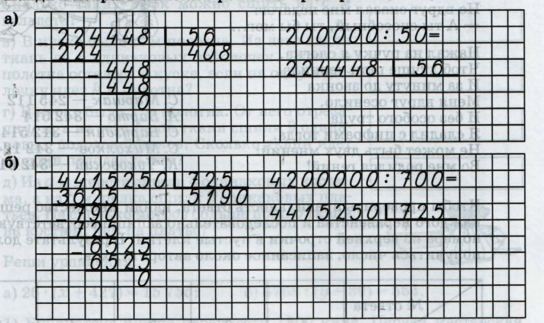 а)
- 224448 | 56   200000 : 50 =
224   408
- 448   224448 | 56
448
0
б)
- 4415250 | 725   4200000 : 700 =
3625   5190
- 790   4415250 | 725
725
- 6525
6525
0